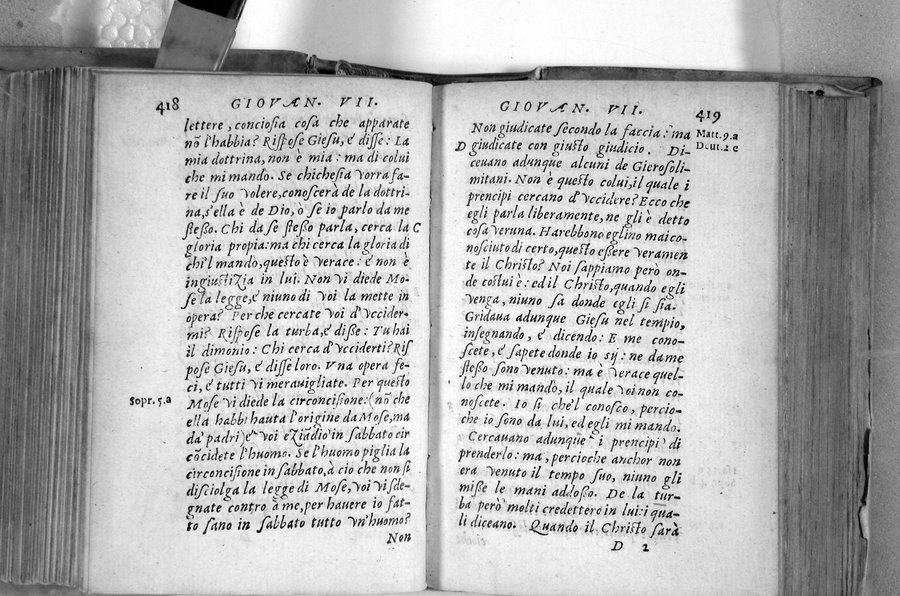 418 GIOVAN. VII.
lettere, conciosia cosa che apparate
nō l'habbia? Rispose Giesu, e' disse: La
mia dottrina, non è mia: ma di colui
che mi mando. Se chichesia vorra fa-
re il suo volere, conoscerà de la dottri-
na, s'ella è de Dio, ò se io parlo da me
stesso. Chi da se stesso parla, cerca la
C
gloria propia: ma chi cerca la gloria di
chi'l mando, questo è verace: e non è
ingiustizia in lui. Non vi diede Mo-
se la legge, e niuno di voi la mette in
opera? Per che cercate voi d'vccider-
mi? Rispose la turba, e disse: Tu hai
il dimonio: Chi cerca d'vcciderti? Ris
pose Giesu, e' disse loro. Vna opera fe-
ci, e tutti vi meravigliate. Per questo
Sopr. 5.a
Mose vi diede la circoncisione: (nō che
ella habbi hauta l'origine da Mose, ma
da' padri) e' voi eziādio in sabbato cir
cōcidete l'huomo. Se l'huomo piglia la
circoncisione in sabbato, à cio che non si
disciolga la legge di Mose, voi vi sde-
gnate contro à me, per hauere io fat-
to sano in sabbato tutto vn'huomo?
Non
GIOVAN. VII. 419
Non giudicate secondo la faccia: ma
Matt. 9.a
D giudicate con giusto giudicio. Di-
Deut. 2 c
ceuano adunque alcuni de Gierosoli-
mitani. Non è questo colui, il quale i
prencipi cercano d'vccidere? Ecco che
egli parla liberamente, ne gli è detto
cosa veruna. Harebbono eglino mai co-
nosciuto di certo, questo essere veramen
te il Christo? Noi sappiamo però on-
de costui è: ed il Christo, quando egli
venga, niuno sa donde egli si sia.
Gridaua adunque Giesu nel tempio,
insegnando, e' dicendo: E me cono-
scete, e' sapete donde io sÿ: ne da me
stesso sono venuto: ma è verace quel-
lo che mi mandò, il quale voi non co-
noscete. Io si che'l conosco, percio-
che io sono da lui, ed egli mi mando.
Cercauano adunque i prencipi di
prenderlo: ma, percioche anchor non
era venuto il tempo suo, niuno gli
misse le mani addosso. De la tur-
ba però molti credettero in lui: i qua-
li diceano. Quando il Christo sarà
D 2